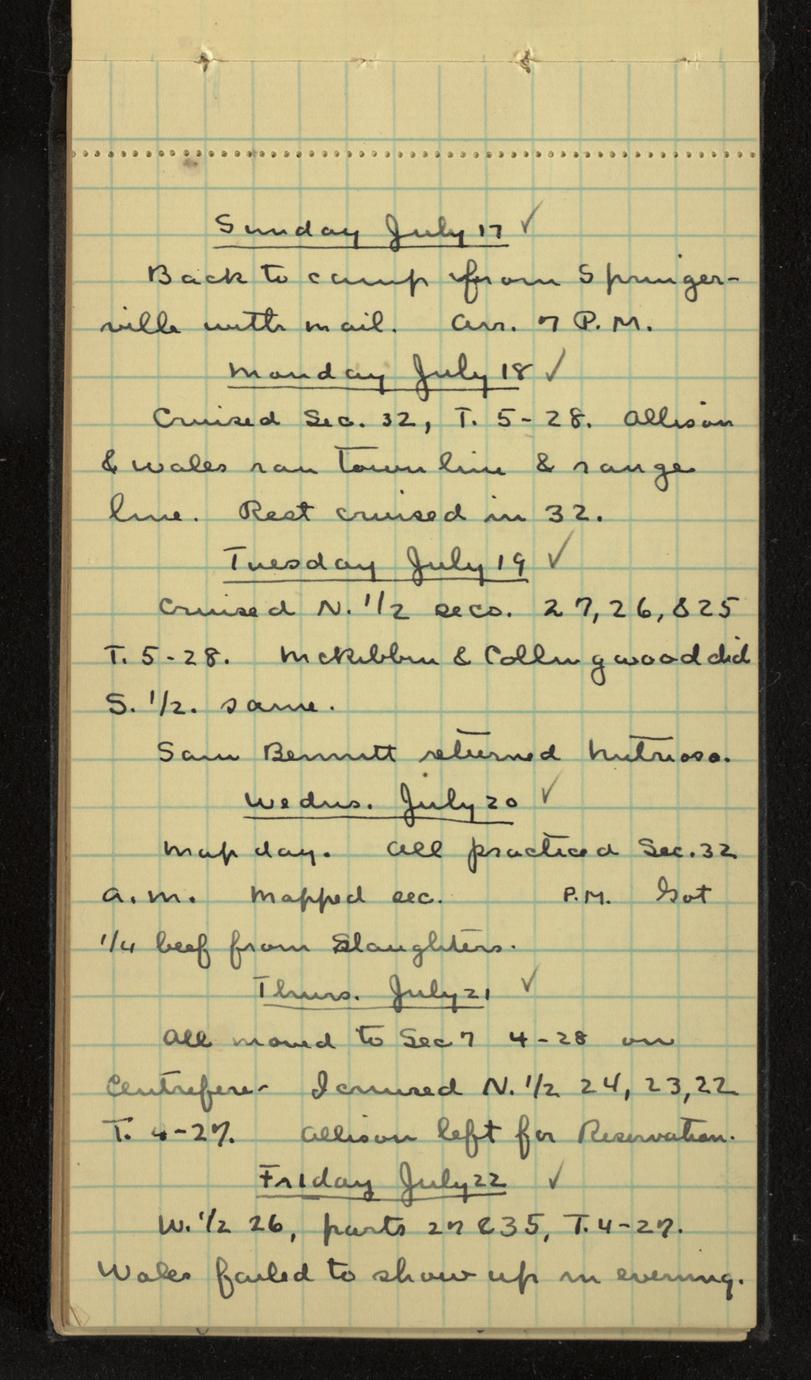 Sunday July 17 ✓
Back to camp from Springer-
ville with mail. Arr. 7 P.M.
Monday July 18 ✓
Cruised Sec. 32, T. 5-28. Allison
& Wales ran town line & range
line. Rest cruised in 32.
Tuesday July 19 ✓
Cruised N. 1/2 secs. 27, 26, & 25
T. 5-28. McKibbin & Collingwood did
S. 1/2. same.
Sam Bennett returned Nutrioso.
Wednes. July 20 ✓
Map day. All practiced Sec. 32
A.M. Mapped sec. P.M. Got
1/4 beef from Slaughters.
Thurs. July 21 ✓
All moved to Sec 7 4-28 on
Centrefire. I cruised N. 1/2 24, 23, 22
T. 4-27. Allison left for Reservation.
Friday July 22 ✓
W. 1/2 26, parts 27 & 35, T. 4-27.
Wales failed to show up in evening.